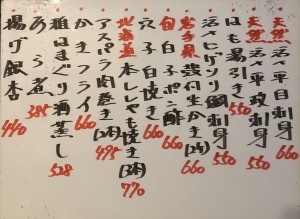 天然 活〆平目刺身 660
天然 活〆平政刺身 550
はも湯引き 550
活〆ヒゲソリ鯛刺身 550
岩手県 殻付生かき(2ケ) 660
旬 白子ポン酢 660
穴子白焼き 660
北海道 本ししゃも焼き(3本) 770
アスパラ肉巻き(2本) 495
かきフライ 660
はまぐり酒蒸し 528
あら煮 385
揚げ銀杏 440